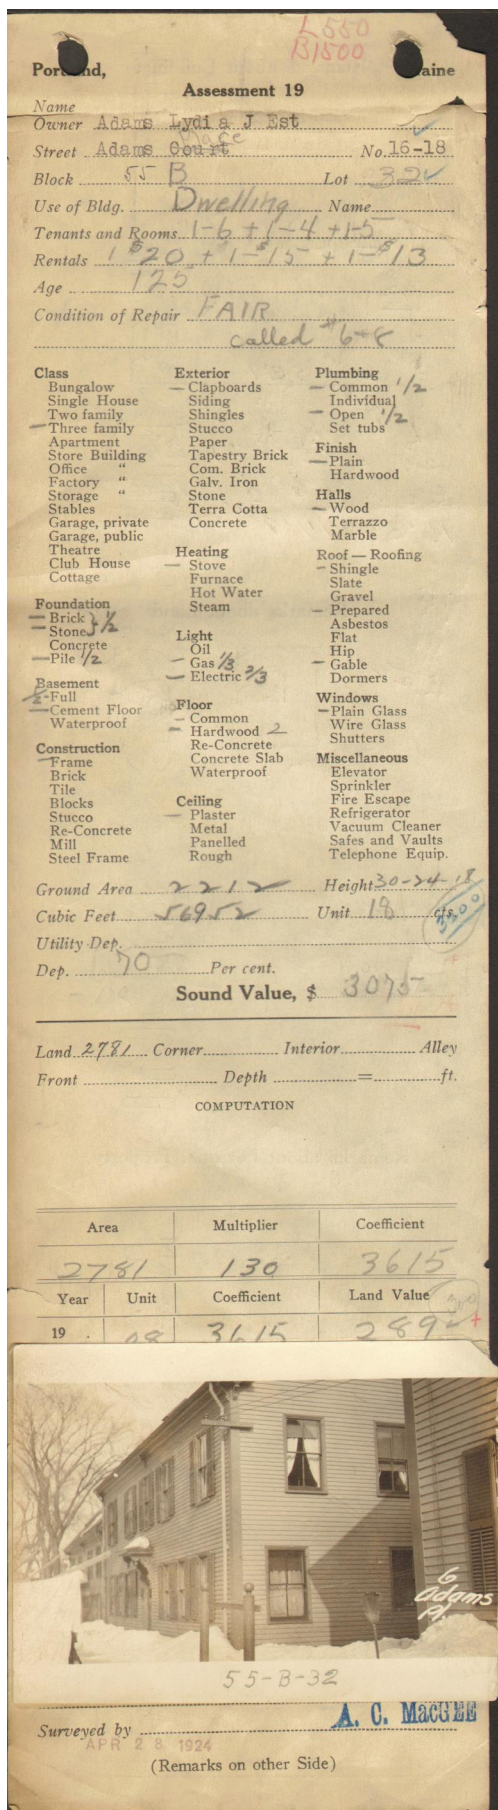 L550
B1500
Portland, Maine
Assessment 19
Name
Owner Adams Lydia J Est
Place
Street Adams Court No. 16-18
Block 55 B Lot 32
Use of Bldg. Dwelling Name
Tenants and Rooms 1-6 + 1-4 + 1-5
Rentals 1 $20 + 1-$15 + 1-$13
Age 125
Condition of Repair FAIR
called #6-8
Class
Bungalow
Single House
Two family
Three family
Apartment
Store Building
Office "
Factory "
Storage "
Stables
Garage, private
Garage, public
Theatre
Club House
Cottage
Foundation
Brick } 1/2
Stone
Concrete
Pile 1/2
Basement
1/2 Full
Cement Floor
Waterproof
Construction
Frame
Brick
Tile
Blocks
Stucco
Re-Concrete
Mill
Steel Frame
Exterior
Clapboards
Siding
Shingles
Stucco
Paper
Tapestry Brick
Com. Brick
Galv. Iron
Stone
Terra Cotta
Concrete
Heating
Stove
Furnace
Hot Water
Steam
Light
Oil
Gas 1/3
Electric 2/3
Floor
Common
Hardwood 2
Re-Concrete
Concrete Slab
Waterproof
Ceiling
Plaster
Metal
Panelled
Rough
Plumbing
Common 1/2
Individual
Open 1/2
Set tubs
Finish
Plain
Hardwood
Halls
Wood
Terrazzo
Marble
Roof — Roofing
Shingle
Slate
Gravel
Prepared
Asbestos
Flat
Hip
Gable
Dormers
Windows
Plain Glass
Wire Glass
Shutters
Miscellaneous
Elevator
Sprinkler
Fire Escape
Refrigerator
Vacuum Cleaner
Safes and Vaults
Telephone Equip.
Ground Area 2212 Height 30-24-18
Cubic Feet 56952 Unit 18 cts.
3300
Utility Dep.
Dep. 70 Per cent.
Sound Value, $ 3075
Land 2781 Corner Interior Alley
Front Depth = ft.
COMPUTATION
Area Multiplier Coefficient
2781 130 3615
Year Unit Coefficient Land Value
300
19 08 3615 289
6
Adams
Pl.
55-B-32
A. C. MacGEE
Surveyed by
APR 28 1924
(Remarks on other Side)